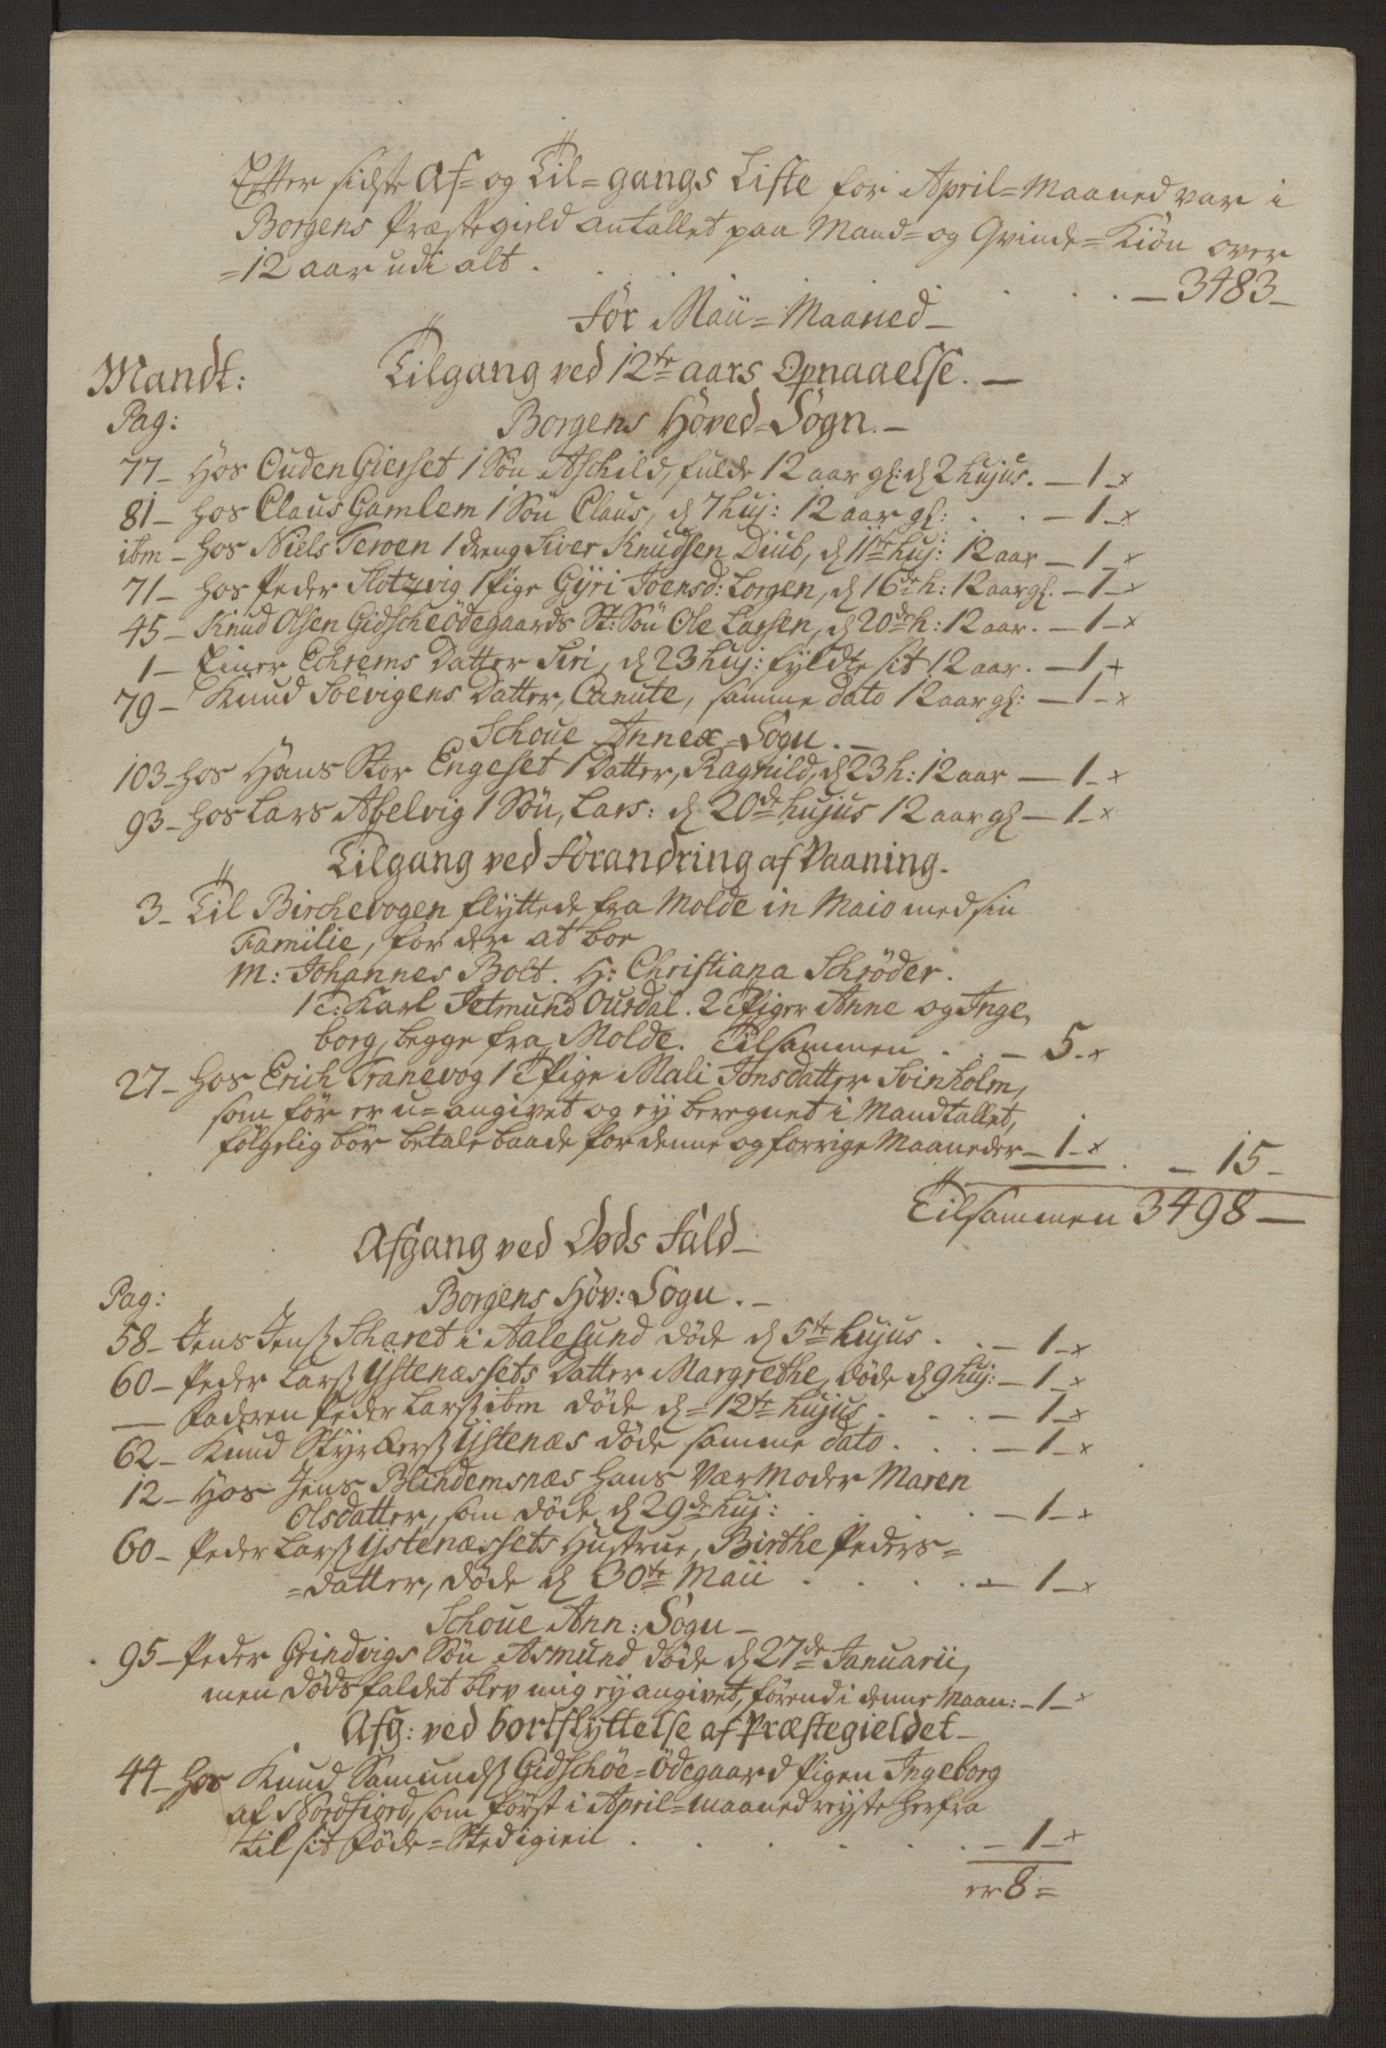 Efter sidste Af- og Til-gangs Liste for April-Maaned var i
Borgens Præstegield Antallet paa Mand- og Qvinde-Kiön over
=12 aar udi alt . . . . . — 3483 —
För Maii-Maaned —
Mandt: Tilgang ved 12te aars Opnaaelse. —
Pag: Borgens Hoved-Sogn. —
77 — Hos Ouden Gierset 1 Sön Aschild, fulde 12 aar gl: d 2 hujus. — 1 — x
81 — Hos Claus Gamlem 1 Sön Claus, d 7 huj: 12 aar gl: . . — 1 — x
ibm — Hos Niels Terøen 1 dreng Siver Knudsen Diub, d 11te huj: 12 aar — 1 — x
71 — Hos Peder Slotzvig 1 Pige Gÿri Joensd: Lorgen, d 16de h: 12 aar gl. — 1 — x
45 — Knud Olsen Gidscheödegaards St: Sön Ole Larsen, d 20de h: 12 aar. — 1 — x
1 — Einer Echrems Datter Siri, d 23 huj: fyldte sit 12 aar. — 1 — x
79 — Knud Soëvigens Datter, Canute, samme dato 12 aar gl: — 1 — x
Schoue Annex-Sogn. —
103 — Hos Hans Stor Engeset 1 Datter, Ragnild, d 23 h: 12 aar — 1 — x
93 — Hos Lars Aspelvig 1 Sön, Lars: d 20de hujus 12 aar gl — 1 — x
Tilgang ved Forandring af Vaaning.
3 — Til Birchevogen flÿttede fra Molde in Maio med sin
Familie, for der at boe
M: Johannes Bolt. H: Christiana Schröder.
1 T: Karl Jetmund Ourdal. 2 T Piger Anne og Inge,
borg, begge fra Molde. Tilsammen . . — 5 — x
27 — Hos Erich Tranevog 1 T Pige Mali Jonsdatter Svinholm,
som för er u-angivet og ej beregnet i Mandtallet,
fölgelig bör betale baade for denne og forrige Maaneder — 1 — x . — 15 —
Tilsammen 3498 —
Afgang ved Döds Fald —
Pag: Borgens Hov: Sogn. —
58 — Jens Jenss Scharet i Aalesund döde d 5te hujus . . — 1 — x
60 — Peder Larss Ystenæssets Datter Margrethe, döde d 9 huj: — 1 — x
— Faderen Peder Larss ibm döde d = 12te hujus . . . — 1 — x
62 — Knud Stÿrkerss Ystenæs döde samme dato . . . — 1 — x
12 — Hos Jens Blindemsnæs hans Vær Moder Maren
Olsdatter, som döde d 29de huj: . . . . — 1 — x
60 — Peder Larss Ystenæssets Hustrue, Birthe Peders=
=datter, döde d 30te Maii . . . . — 1 — x
Schoue Ann: Sogn —
95 — Peder Grindvigs Sön Asmund döde d 27de Januarii,
men dödsfaldet blev mig ej angivet, förend i denne Maan: — 1 — x
Afg: ved bortflÿttelse af Præstegieldet —
44 — Hos Knud Samundss Gidschöe-ödegaard Pigen Ingeborg
af Nordfiord, som först i April-maaned rejste herfra
til sit Föde-Sted igien . . . . . — 1 — x
er 8 =